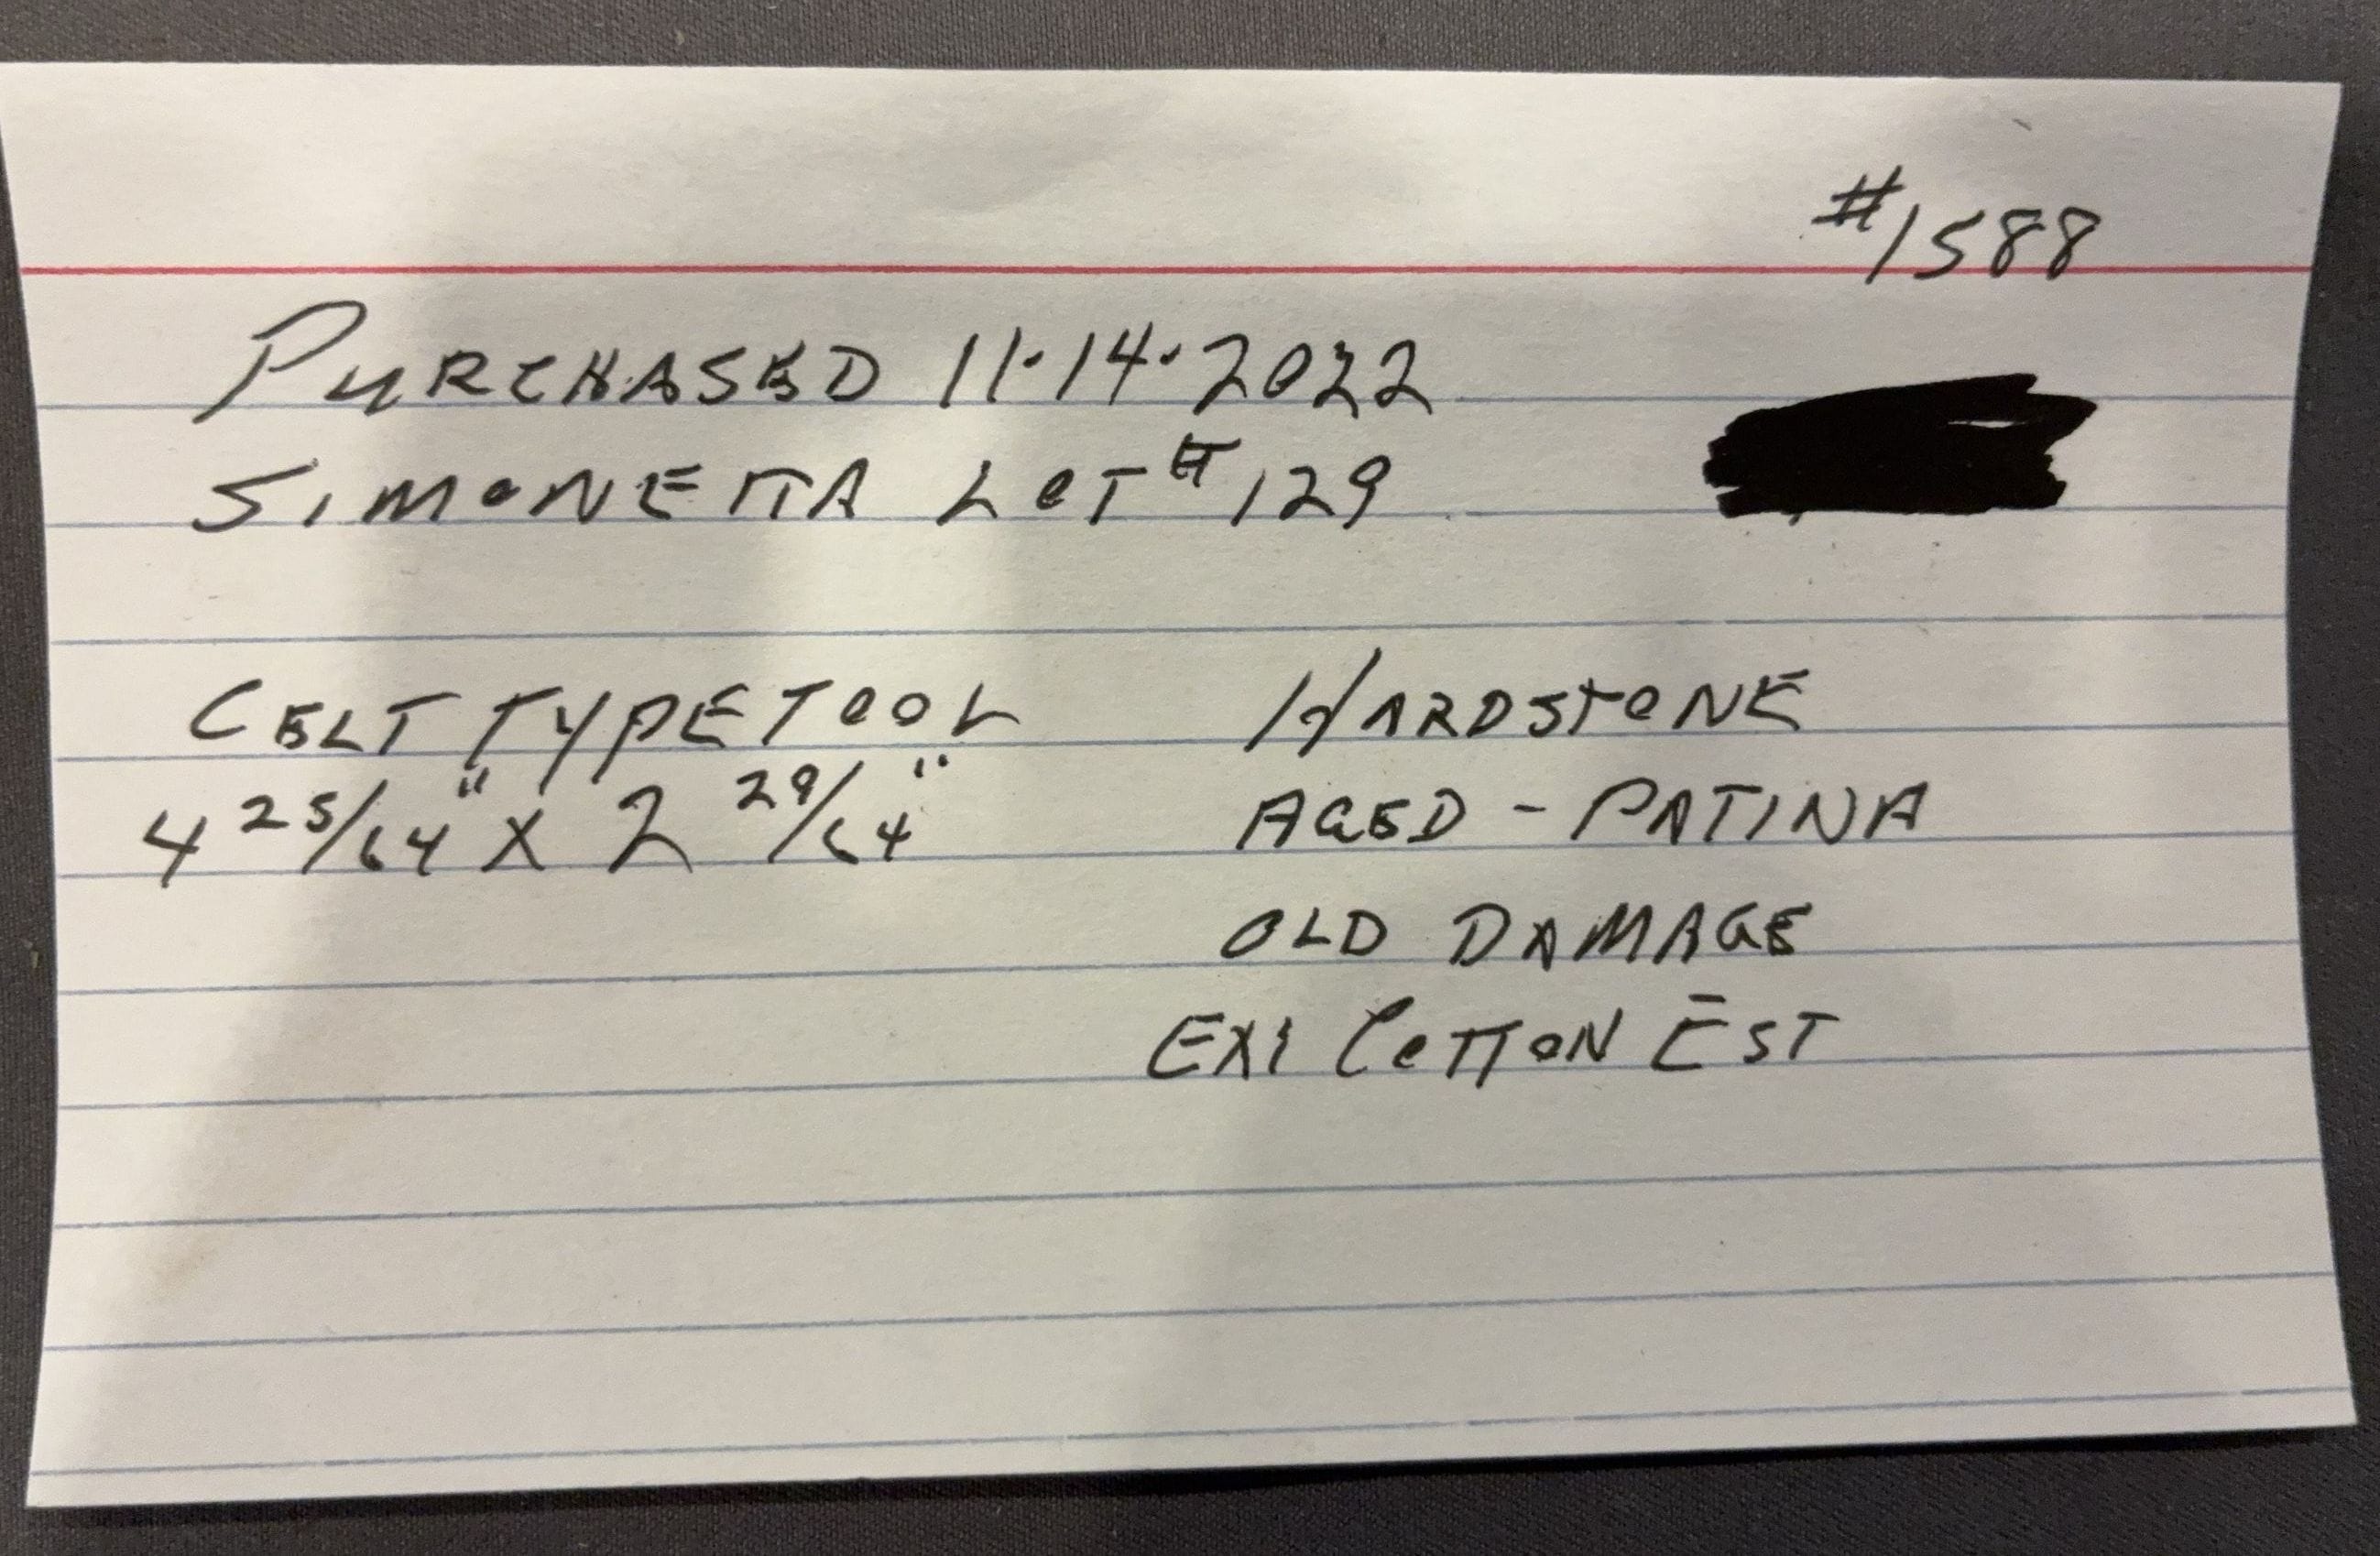 #1588
PURCHASED 11·14·2022
SIMONETTA LOT #129
CELT TYPE TOOL
4 25/64" X 2 29/64"
HARDSTONE
AGED - PATINA
OLD DAMAGE
COTTON EST